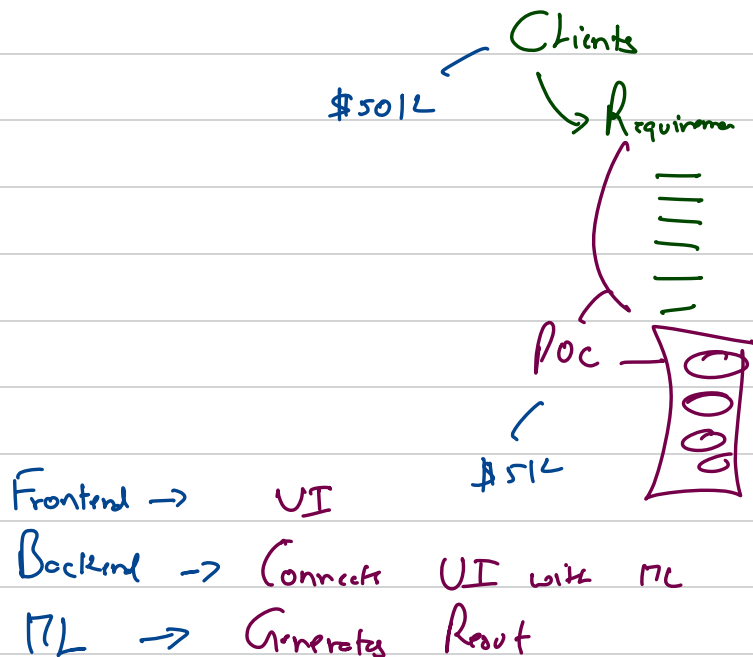 Clients
$50K
Requiremen
POC
$5K
Frontend → UI
Backend → Connects UI with ML
ML → Generates Result